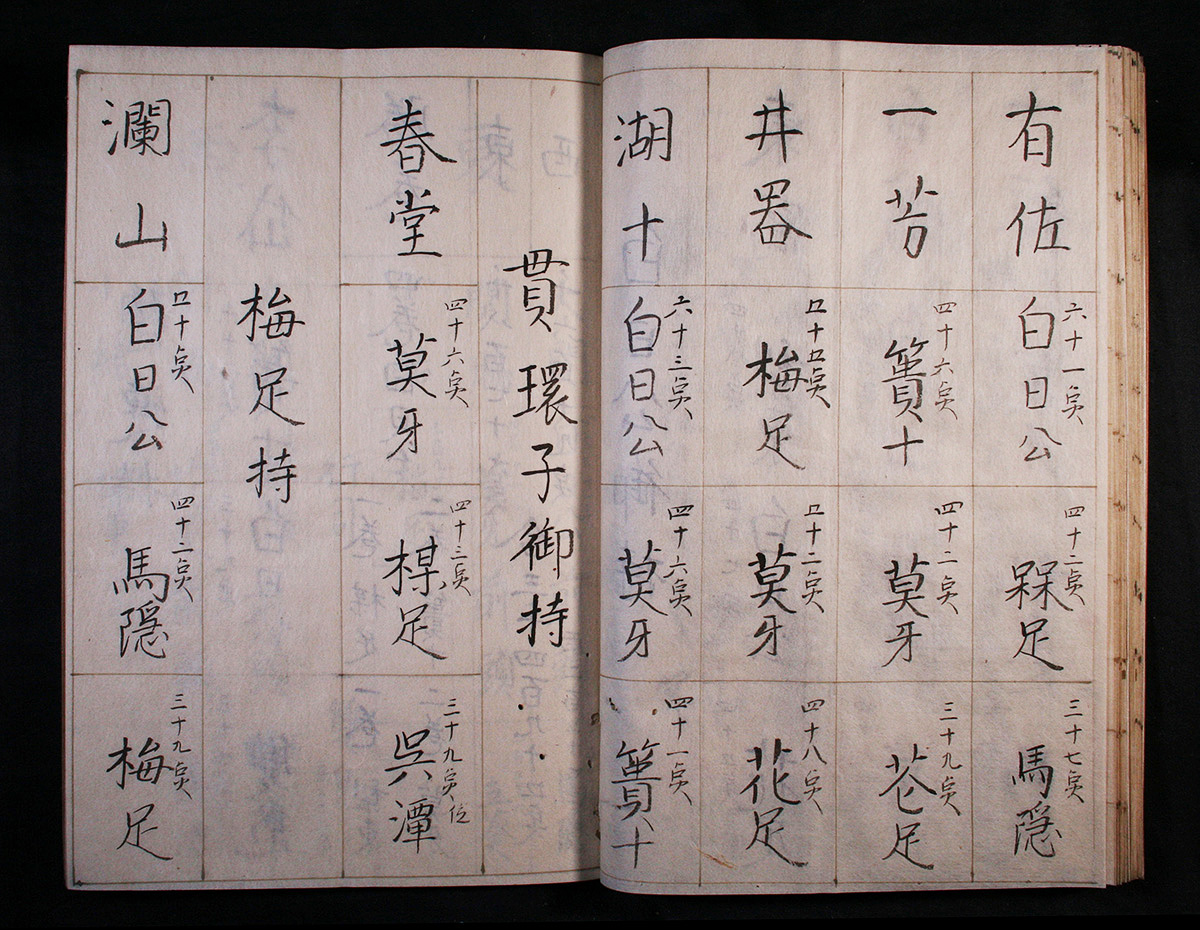 有佐
六十一点
白日公
四十二点
槑足
三十七点
馬隠
一芳
四十六点
簣十
四十二点
莫牙
三十九点
花足
井器
五十五点
梅足
五十二点
莫牙
四十八点
花足
湖十
六十三点
白日公
四十六点
莫牙
四十一点
簣十
貫環子御持
春堂
四十六点
莫牙
四十三点
楳足
三十九点位
呉潭
梅足持
瀾山
五十点
白日公
四十二点
馬隠
三十九点
梅足